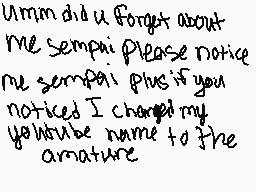 umm did u forget about
me sempai please notice
me sempai plus if you
noticed I changed my
youtube name to the
amature